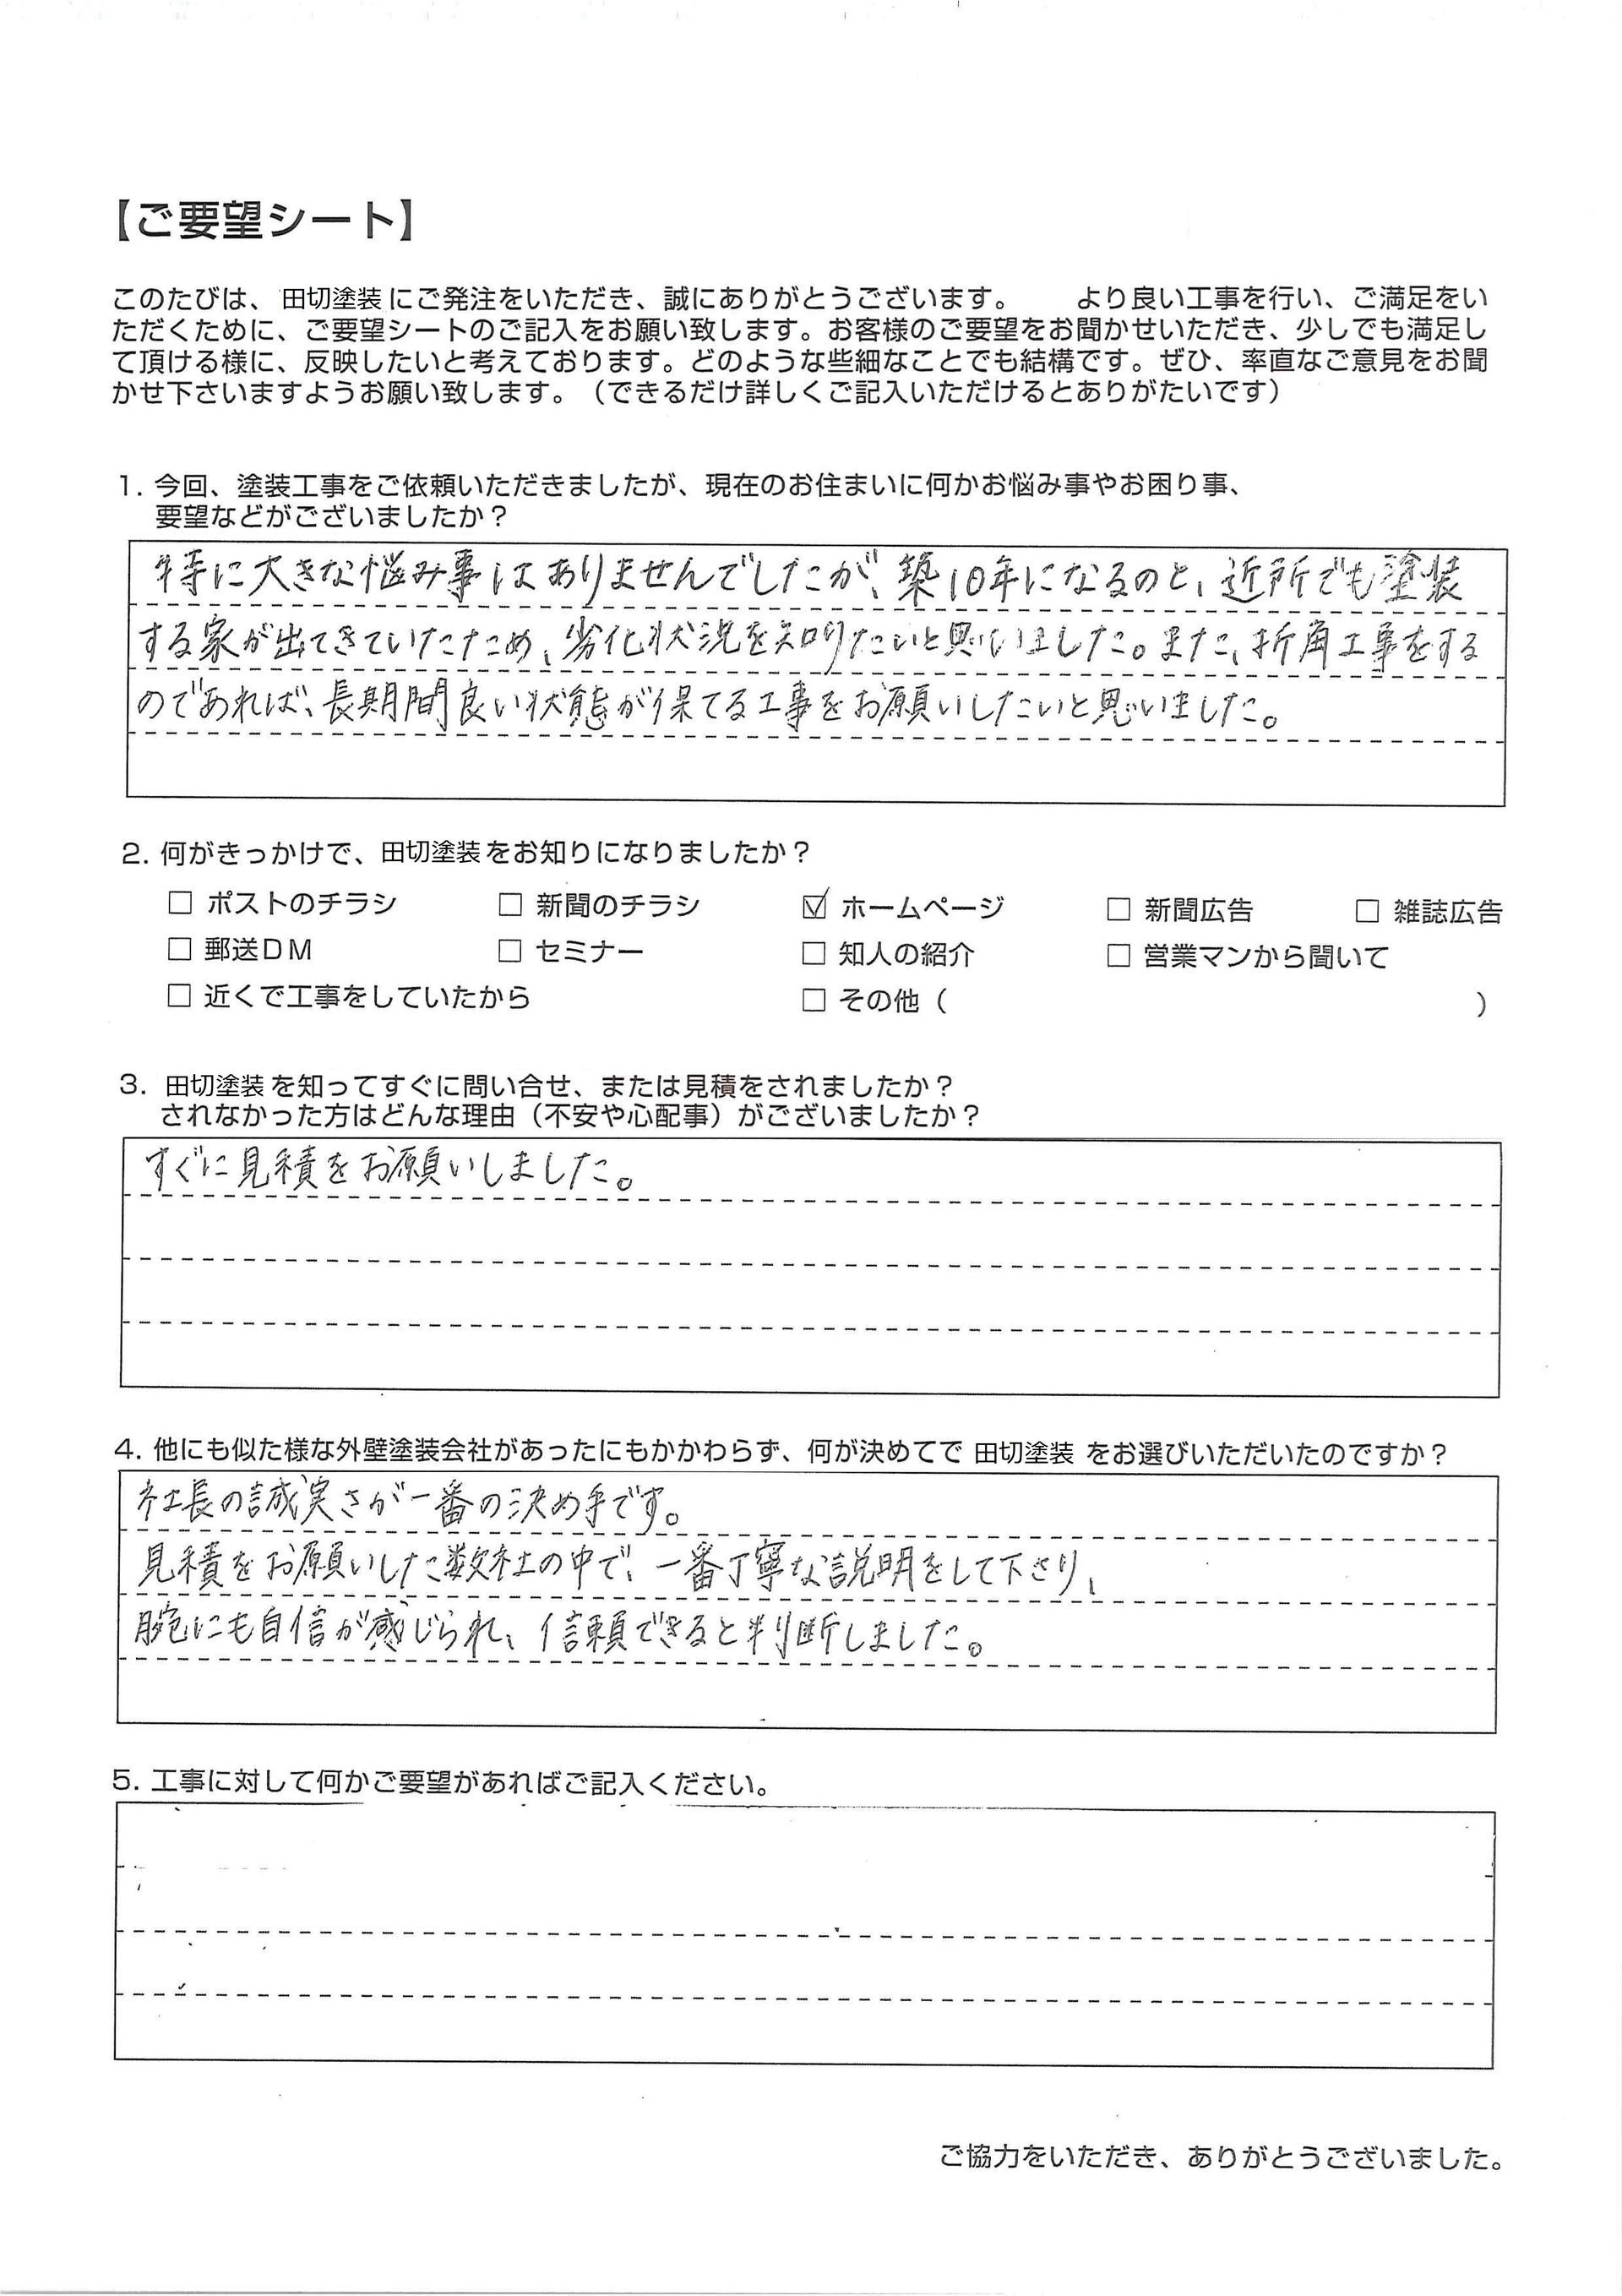 【ご要望シート】
このたびは、田切塗装にご発注をいただき、誠にありがとうございます。　より良い工事を行い、ご満足をい
ただくために、ご要望シートのご記入をお願い致します。お客様のご要望をお聞かせいただき、少しでも満足し
て頂ける様に、反映したいと考えております。どのような些細なことでも結構です。ぜひ、率直なご意見をお聞
かせ下さいますようお願い致します。（できるだけ詳しくご記入いただけるとありがたいです）
1. 今回、塗装工事をご依頼いただきましたが、現在のお住まいに何かお悩み事やお困り事、
要望などがございましたか？
特に大きな悩み事はありませんでしたが、築10年になるのと、近所でも塗装
する家が出てきていたため、劣化状況を知りたいと思いました。また、折角工事をする
のであれば、長期間良い状態が保てる工事をお願いしたいと思いました。
2. 何がきっかけで、田切塗装をお知りになりましたか？
□ ポストのチラシ　□ 新聞のチラシ　☑ ホームページ　□ 新聞広告　□ 雑誌広告
□ 郵送DM　□ セミナー　□ 知人の紹介　□ 営業マンから聞いて
□ 近くで工事をしていたから　□ その他（　）
3. 田切塗装を知ってすぐに問い合せ、または見積をされましたか？
されなかった方はどんな理由（不安や心配事）がございましたか？
すぐに見積をお願いしました。
4. 他にも似た様な外壁塗装会社があったにもかかわらず、何が決めてで 田切塗装 をお選びいただいたのですか？
社長の誠実さが一番の決め手です。
見積をお願いした数社の中で、一番丁寧な説明をして下さり、
腕にも自信が感じられ、信頼できると判断しました。
5. 工事に対して何かご要望があればご記入ください。
ご協力をいただき、ありがとうございました。